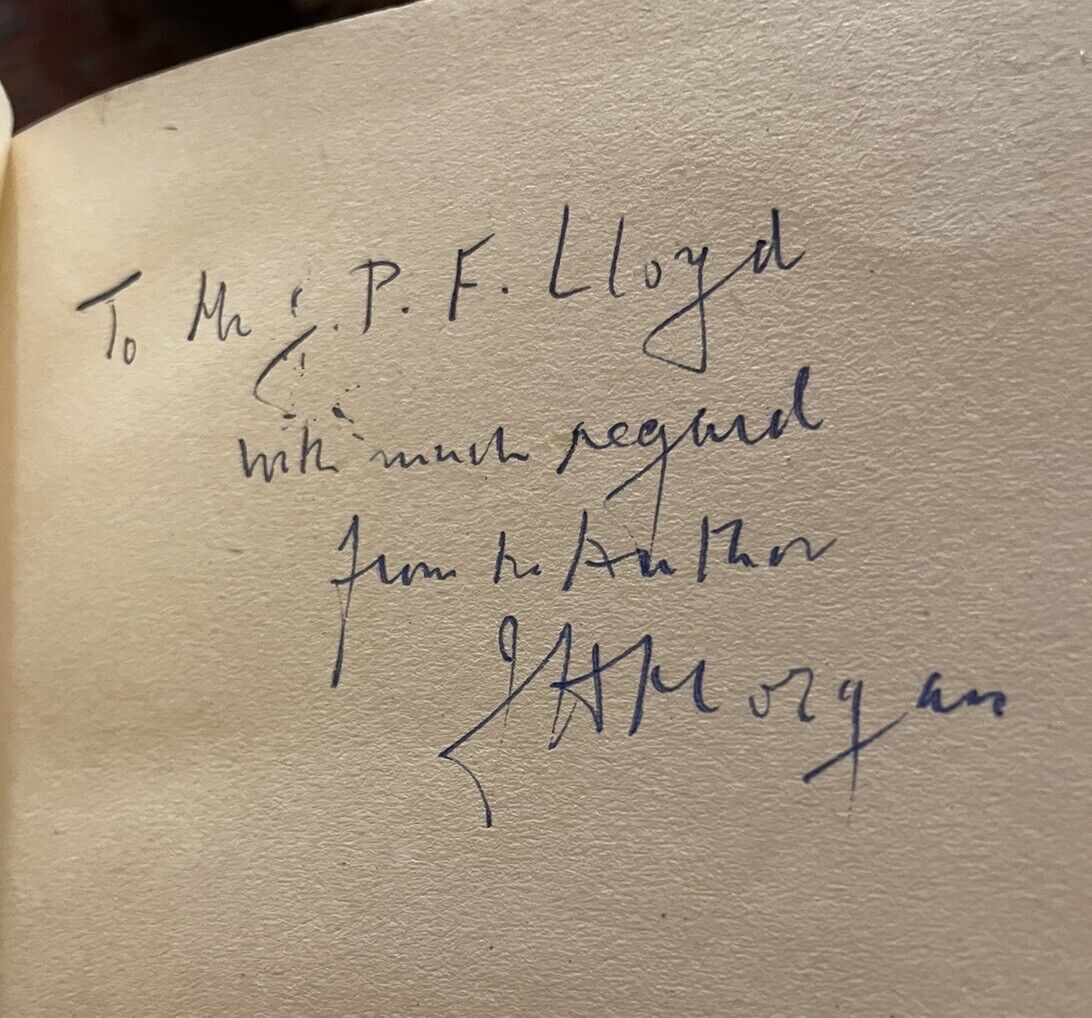 To Mr J. P. F. Lloyd
with much regard
from the Author
J H Morgan